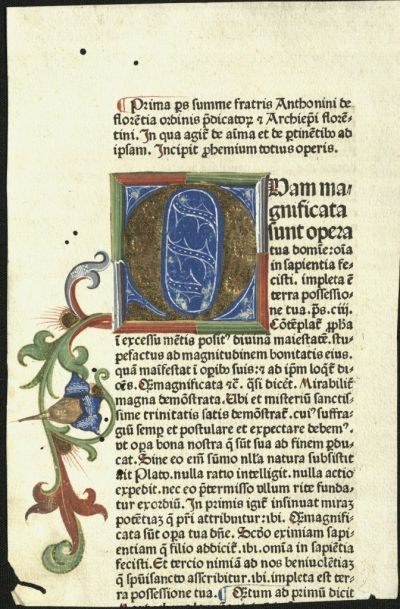 Prima ps summe fratris Anthonini de
florētia ordinis p̄dicatoꝝ ⁊ Archiep̄i floren̄-
tini. In qua agit̄ de aīma et de ptinētibꝰ ad
ipsam. Incipit ꝓhemium totius operis.
Quam ma-
gnificata
sunt opera
tua domīe: oīa
in sapientia fe-
cisti. impleta ē
terra possessio-
ne tua. p̄s. ciij.
Cōtēplat̄ ꝓph̄a
ī excessu mētis positꝰ diuina maiestatē. stu-
pefactus ad magnitudinem bonitatis eius.
quā maīfestat ī opibꝰ suis: ⁊ ad ip̄m loqt̄ di-
cēs. Qꝫmagnificata ⁊c̄. q̄si dicēt. Mirabilit̄
magna demōstrata. Ubi et misteriū sanctis-
sime trinitatis satis demōstrat̄. cuiꝰ suffra-
giū semꝑ et postulare et expectare debemꝰ.
vt oꝑa bona nostra q̄ sūt sua ad finem ꝑdu-
cat. Sine eo em̄ sūmo nll̄a natura subsistit
ait Plato. nulla ratio intelligit. nulla actio
expedit. nec eo p̄termisso vllum rite funda-
tur exordiū. In primis igit̄ insinuat miraꝫ
potētiaꝫ q̄ pr̄i attribuitur: ibi. Qꝫmagnifi-
cata sūt oꝑa tua dn̄e. Scd̄o eximiam sapi-
entiam q̄ filio addicit̄. ibi. omīa in sapiētia
fecisti. Et tercio nimiā ad nos beniuolētiaꝫ
q̄ spūisancto asscribitur. ibi. impleta est ter-
ra possessione tua. Quātum ad primū dicit